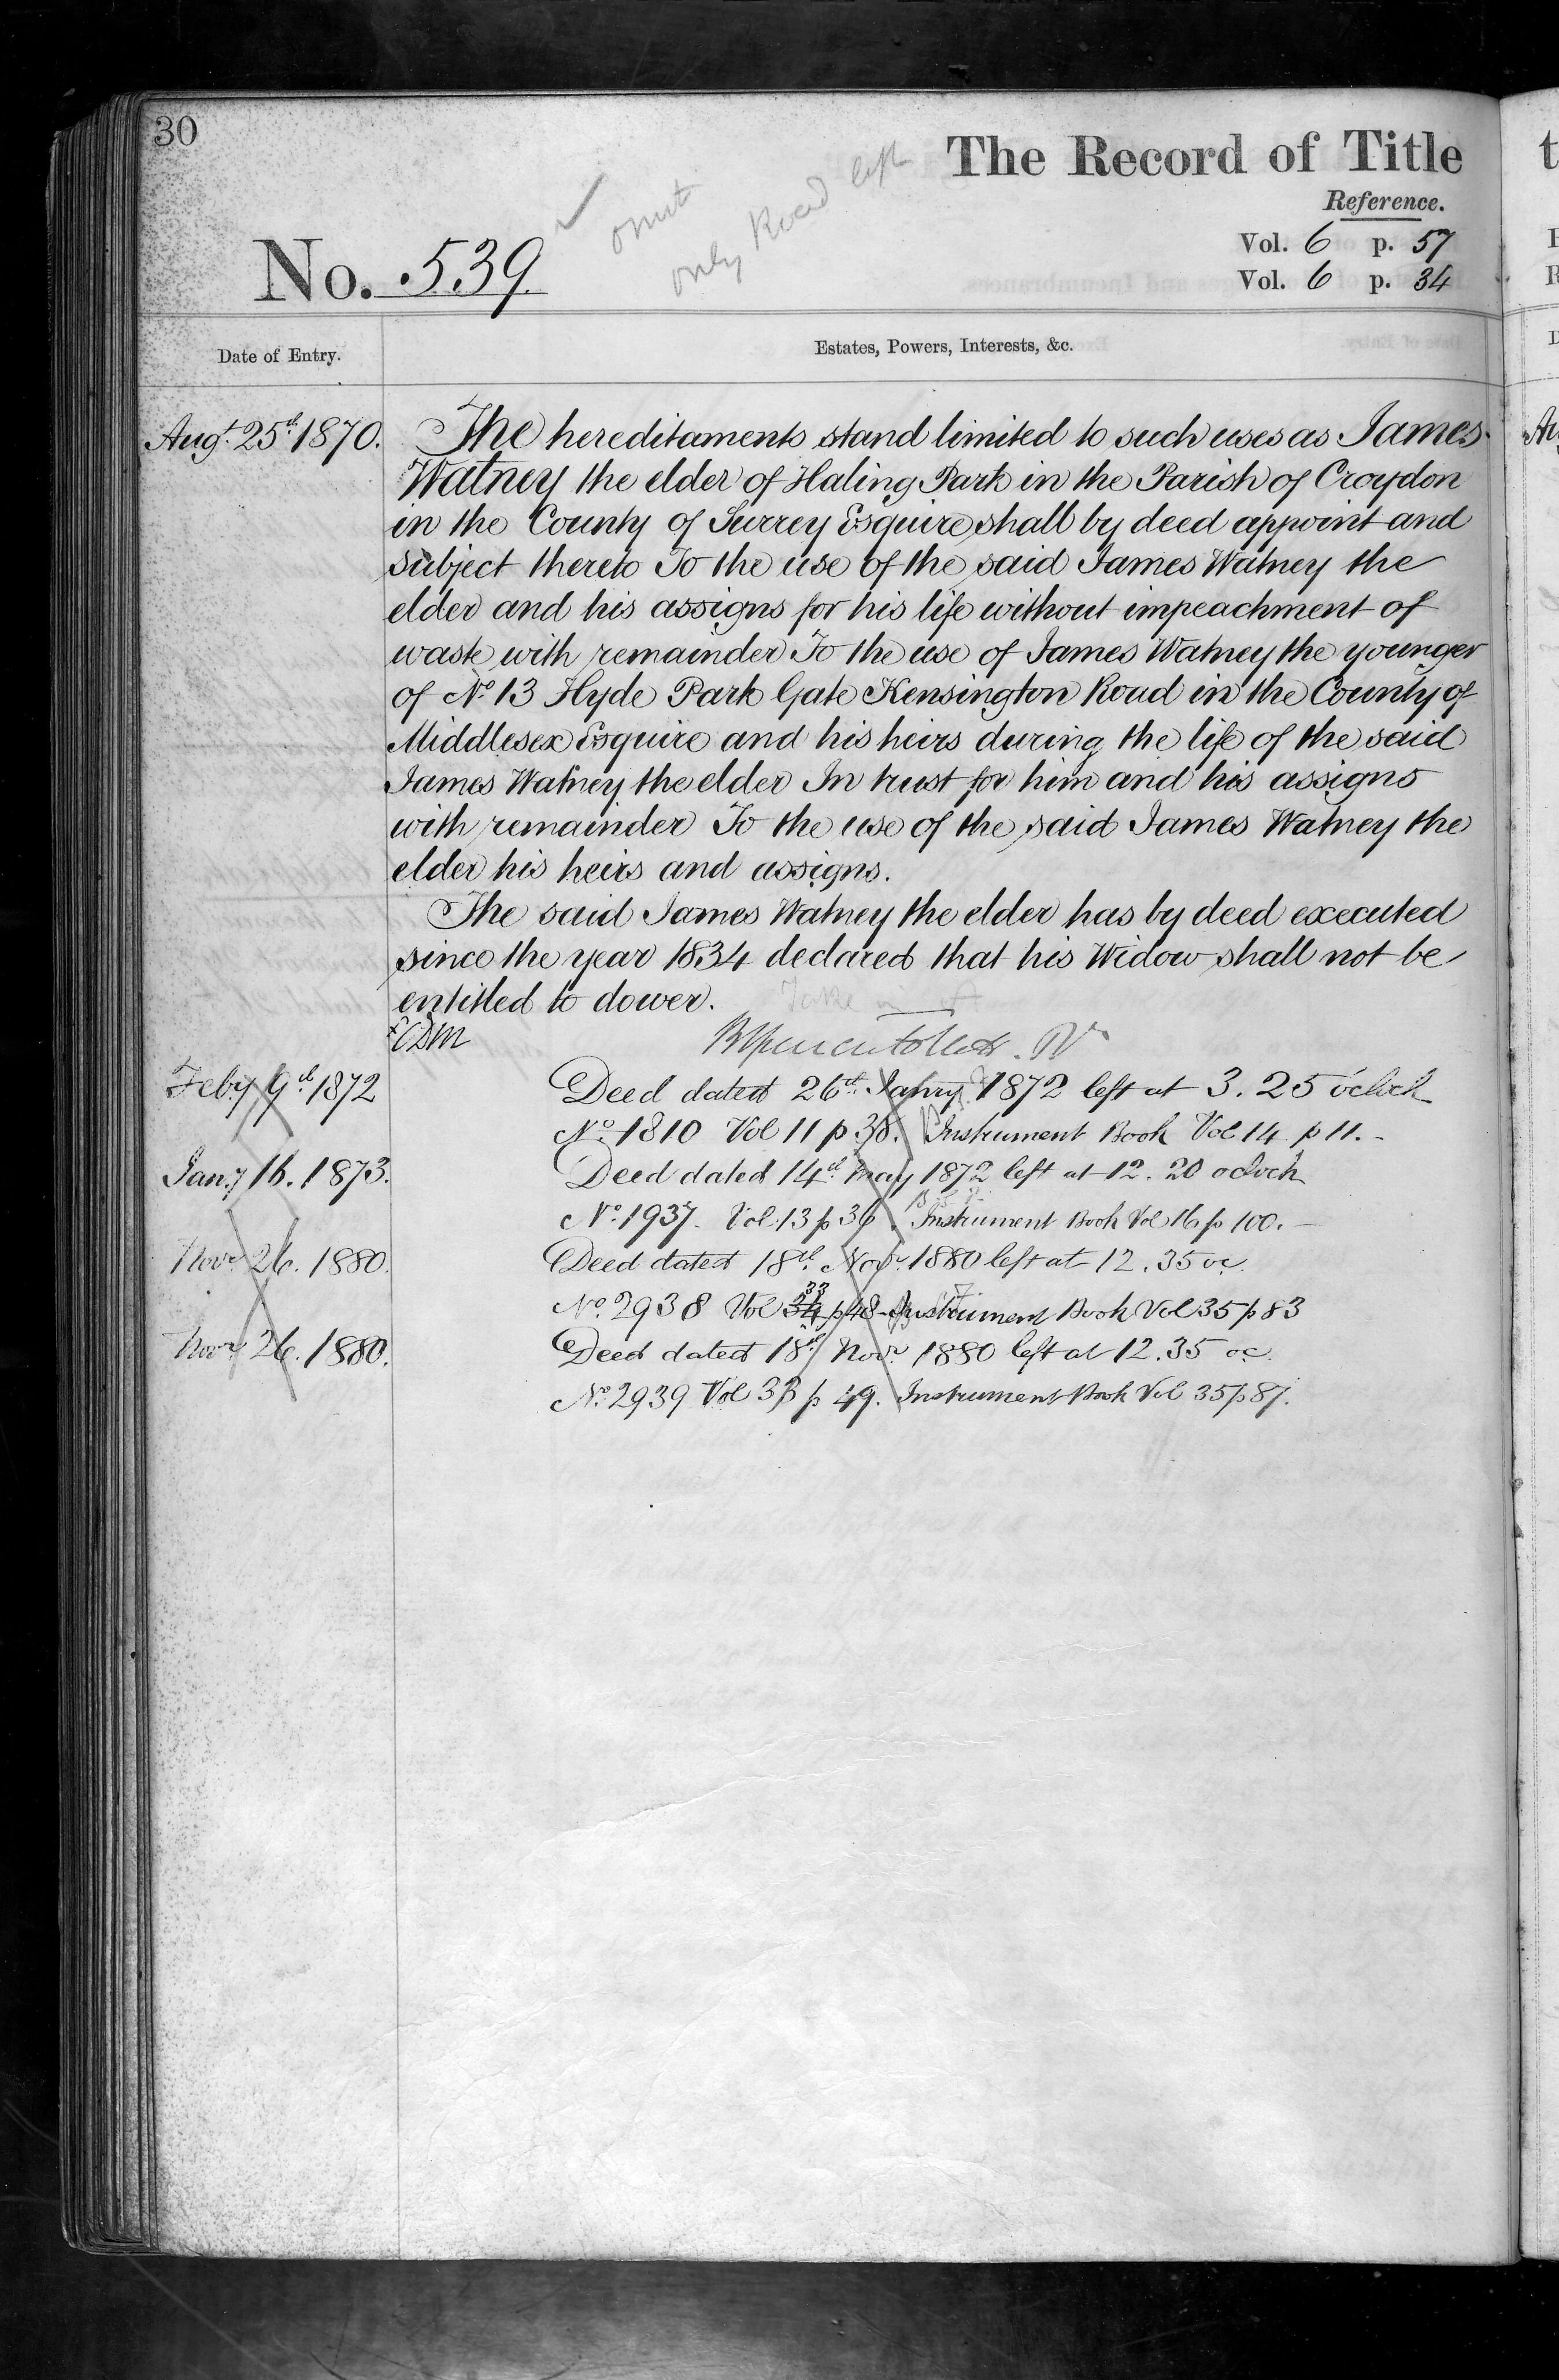 30
The Record of Title
Reference.
Vol. 6 p. 57
Vol. 6 p. 34
omit
only Road left
No. 539
Date of Entry.
Estates, Powers, Interests, &c.
Augt. 25th 1870.
The hereditaments stand limited to such uses as James
Watney the elder of Haling Park in the Parish of Croydon
in the County of Surrey Esquire shall by deed appoint and
subject thereto To the use of the said James Watney the
elder and his assigns for his life without impeachment of
waste with remainder To the use of James Watney the younger
of No 13 Hyde Park Gate Kensington Road in the County of
Middlesex Esquire and his heirs during the life of the said
James Watney the elder In trust for him and his assigns
with remainder To the use of the said James Watney the
elder his heirs and assigns.
The said James Watney the elder has by deed executed
since the year 1834 declared that his Widow shall not be
entitled to dower.
Feby 9th 1872
Deed dated 26th Janry 1872 left at 3.25 oclock
No. 1810 Vol 11 p 38. Instrument Book Vol 14 p 11.-
Jany 16. 1873.
Deed dated 14th May 1872 left at 12.20 oclock
No. 1937 Vol. 13 p 36. Instrument Book Vol 16 p 100.-
Novr 26. 1880.
Deed dated 18th Novr. 1880 left at 12.35 oc.
33
No. 2938 Vol 34 p 48 - Instrument Book Vol 35 p 83
Novr 26. 1880.
Deed dated 18th Novr. 1880 left at 12.35 oc.
No. 2939 Vol 33 p 49. Instrument Book Vol 35 p 87.